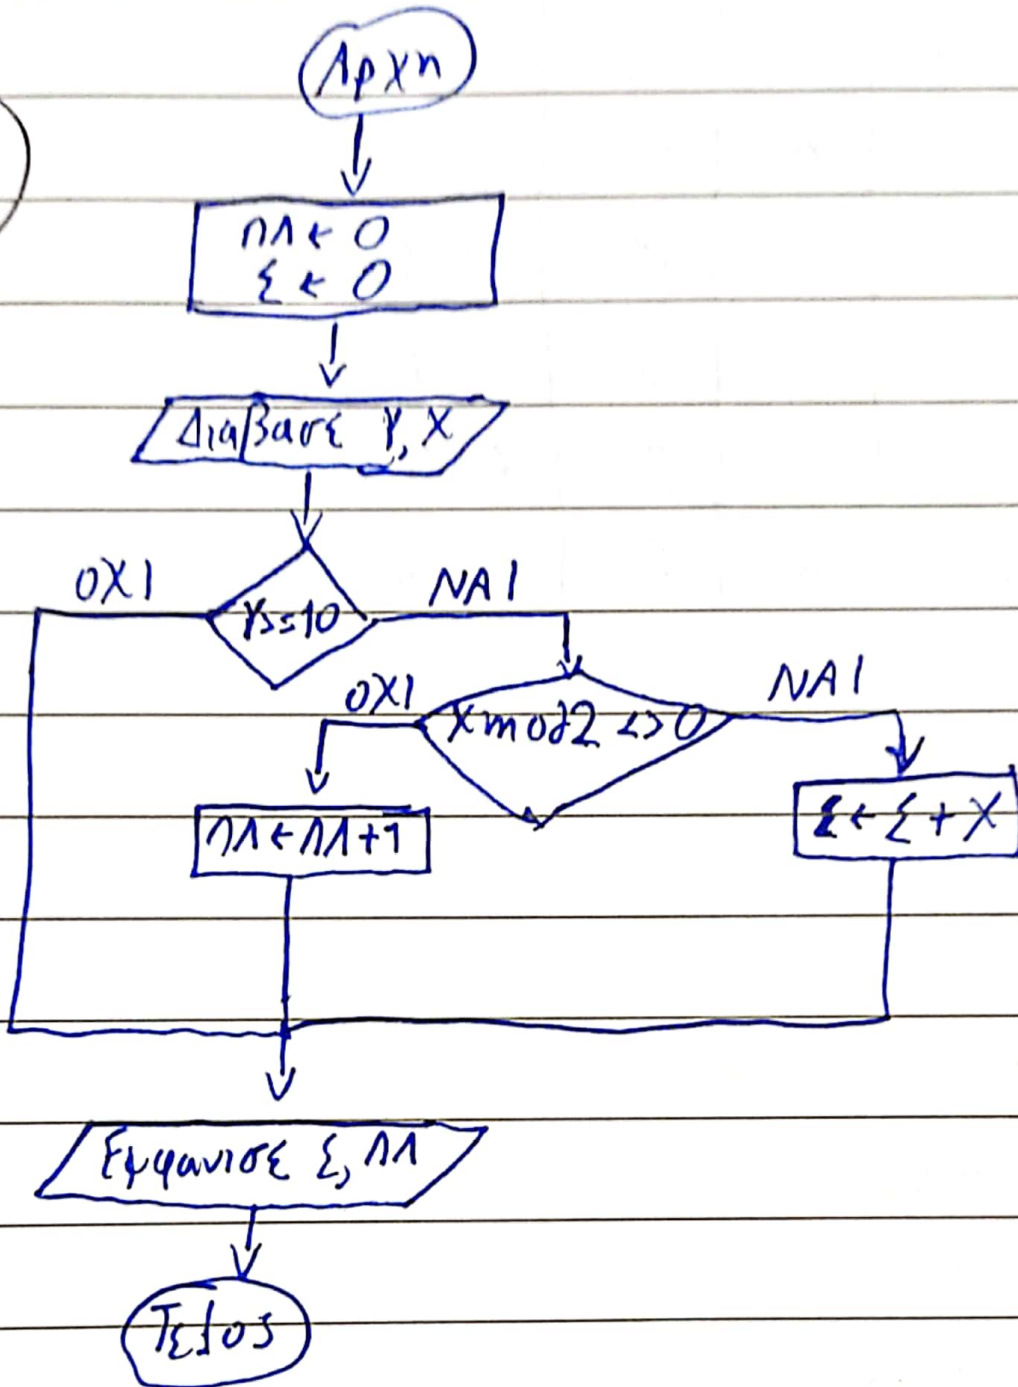 Αρχη
ΠΛ ← 0
Σ ← 0
Διαβασε Υ, Χ
ΟΧΙ
ΝΑΙ
Υ>=10
ΟΧΙ
Χmod2 <>0
ΝΑΙ
ΠΛ ← ΠΛ+1
Σ ← Σ + Χ
Εμφανισε Σ, ΠΛ
Τελος